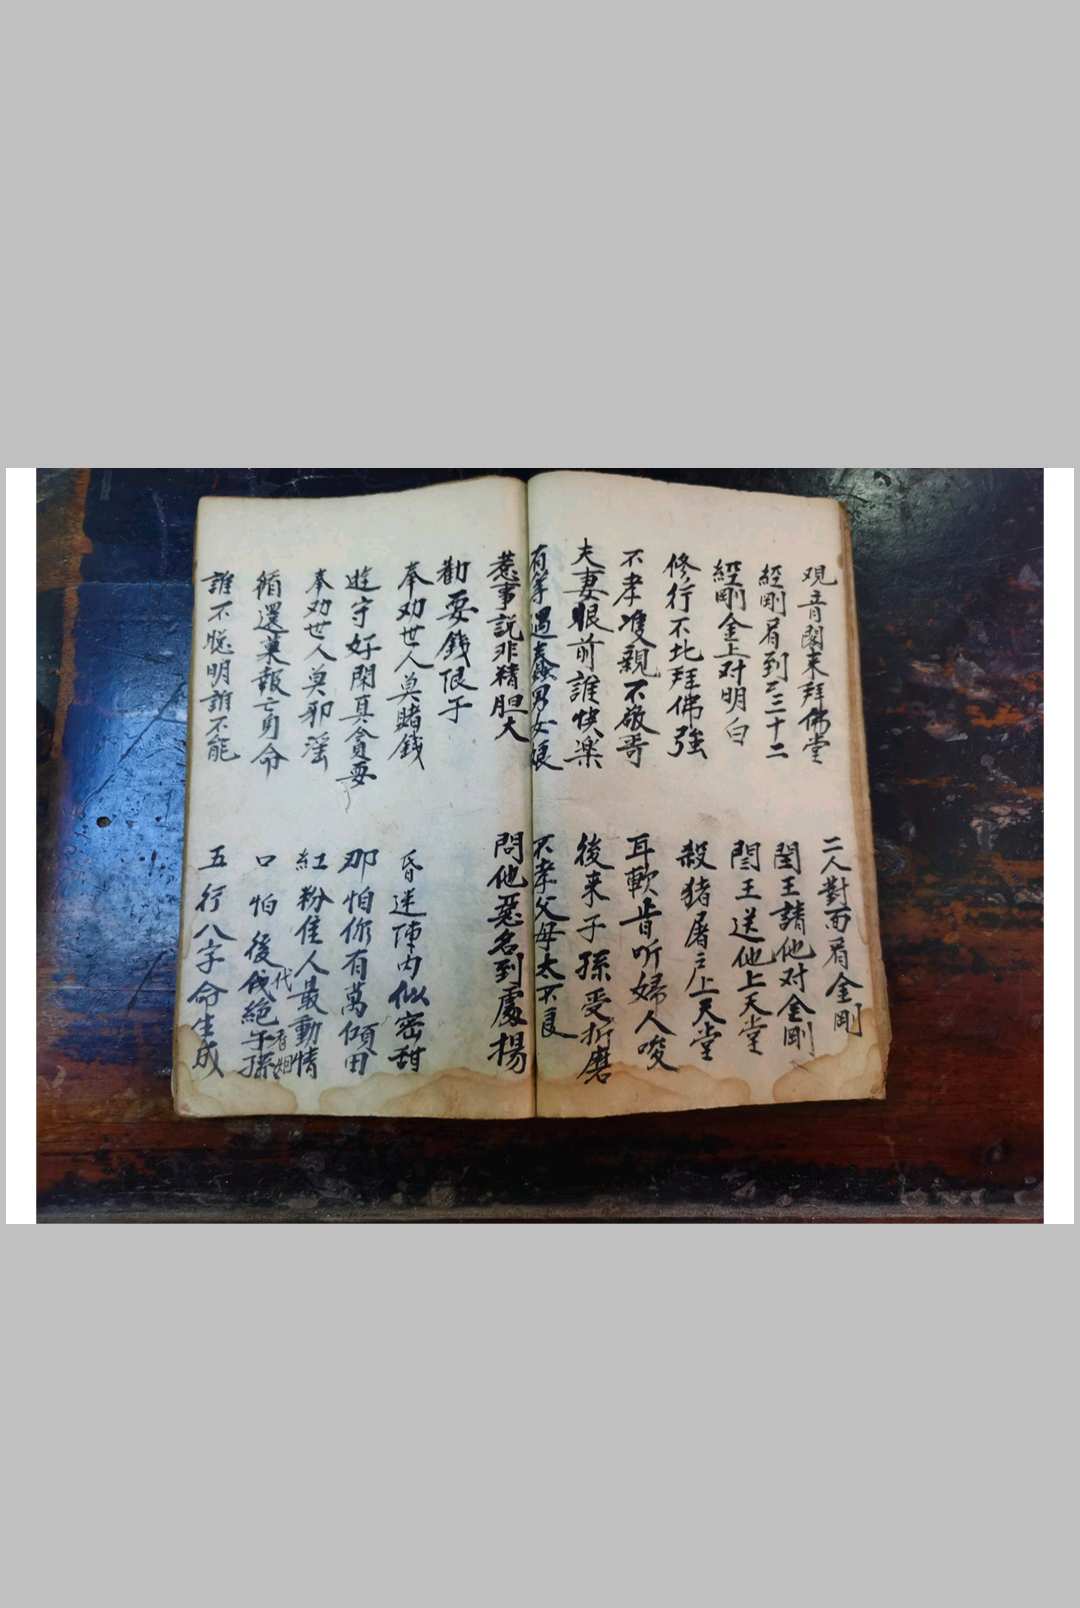 观音閣来拜佛堂 二人對面看金剛
經剛看到三十二 閻王請他对金剛
經剛金上对明白 閻王送他上天堂
修行不比拜佛強 殺猪屠戶上天堂
不孝雙親不敬哥 耳軟肯听婦人唆
夫妻眼前誰快楽 後来子孫受折磨
有等遇蠢男女娘 不孝父母太不良
惹事説非精胆大 問他惡名到處揚
勸耍錢浪子
奉劝世人莫賭錢 昏迷陣内似密甜
遊守好閑真貪耍 那怕你有萬傾田
奉劝世人莫邪滛 紅粉佳人最動情
循還菓報亡身命 口怕後代絕子孫
誰不聪明誰不能 五行八字命生成